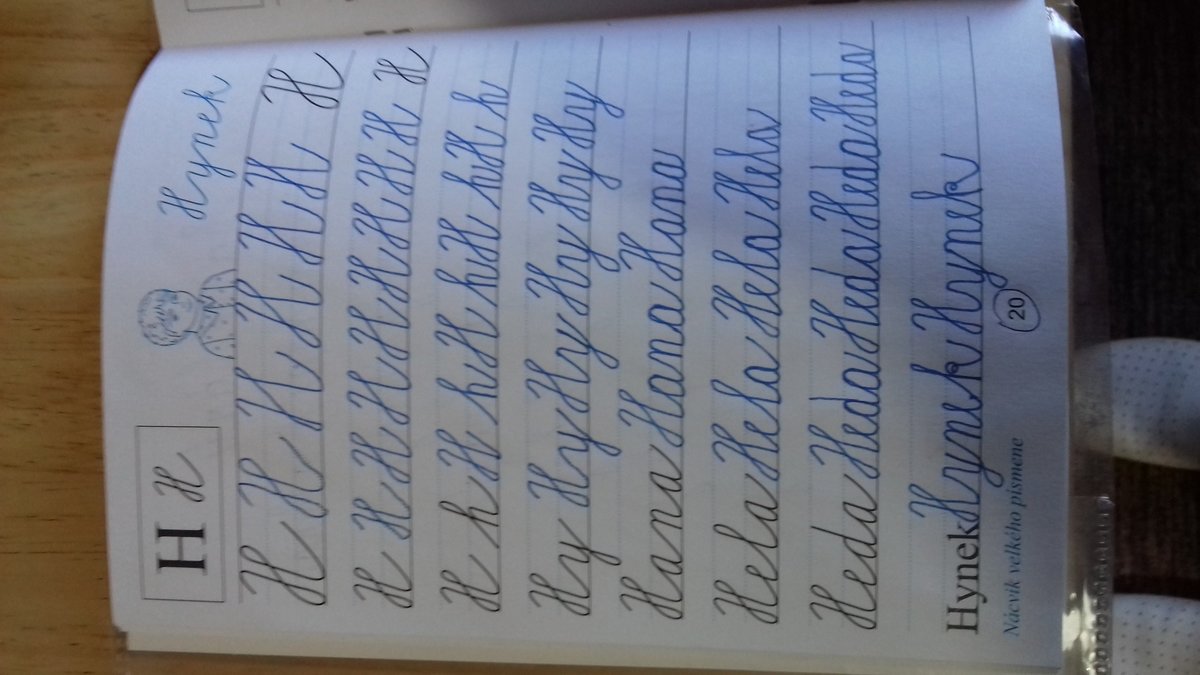 H H Hynek
H H H H H H H
H H H H H H H H H H
H h H h H h H h H h
Hy Hy Hy Hy Hy Hy
Hana Hana Hana
Hela Hela Hela Hela
Heda Heda Heda Heda Heda
Hynek Hynek Hynek
Nácvik velkého písmene 20